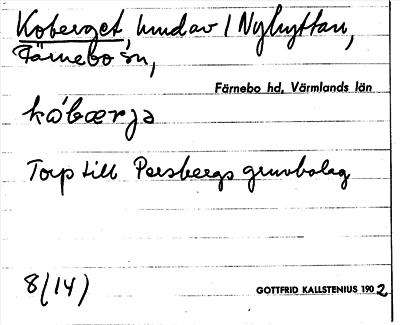 Koberget, hundav / Nyhyttan,
Färnebo sn,
Färnebo hd, Värmlands län
kó'bærja
Torp till Persbergs gruvbolag
8(14)
GOTTFRID KALLSTENIUS 1902